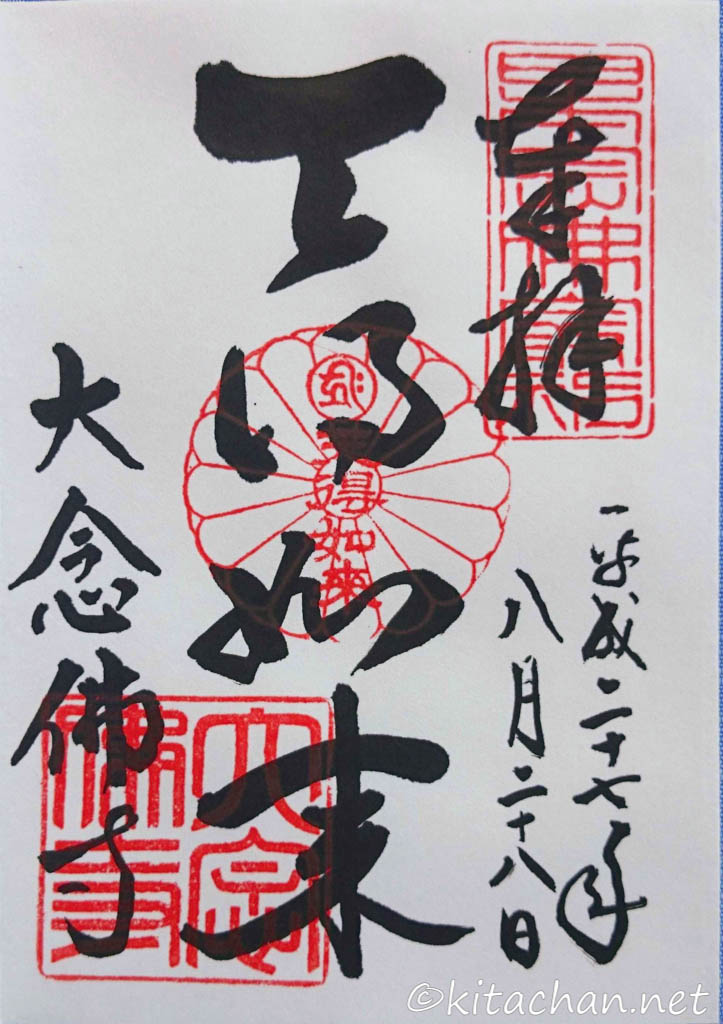 奉拝
平成二十七年
八月二十八日
天得如来
得如来
大念佛寺
大念
佛寺
©kitachan.net